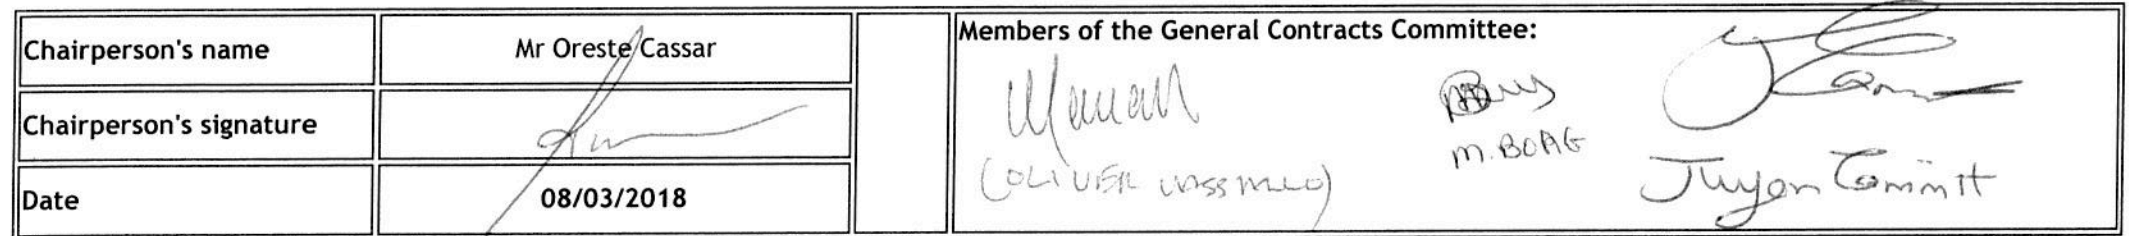 Chairperson's name
Mr Oreste Cassar
Chairperson's signature
Date
08/03/2018
Members of the General Contracts Committee:
M. BORG
(OLIVER